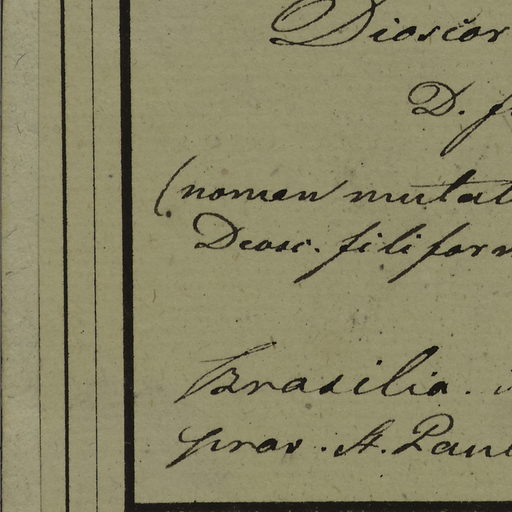 Dioscor
D. f
(nomen mutat
Diosc. filiform
Brasilia.
prov. St. Paul